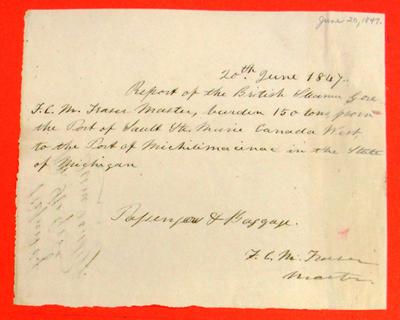 June 20, 1847.
20th June 1847.
Report of the British Steamer Gore
F. C. M. Fraser Master, burden 150 tons from
the Port of Sault Ste. Marie Canada West
to the Port of Michilimacinac in the State
of Michigan
Passengers & Baggage.
F. C. M. Fraser
Master